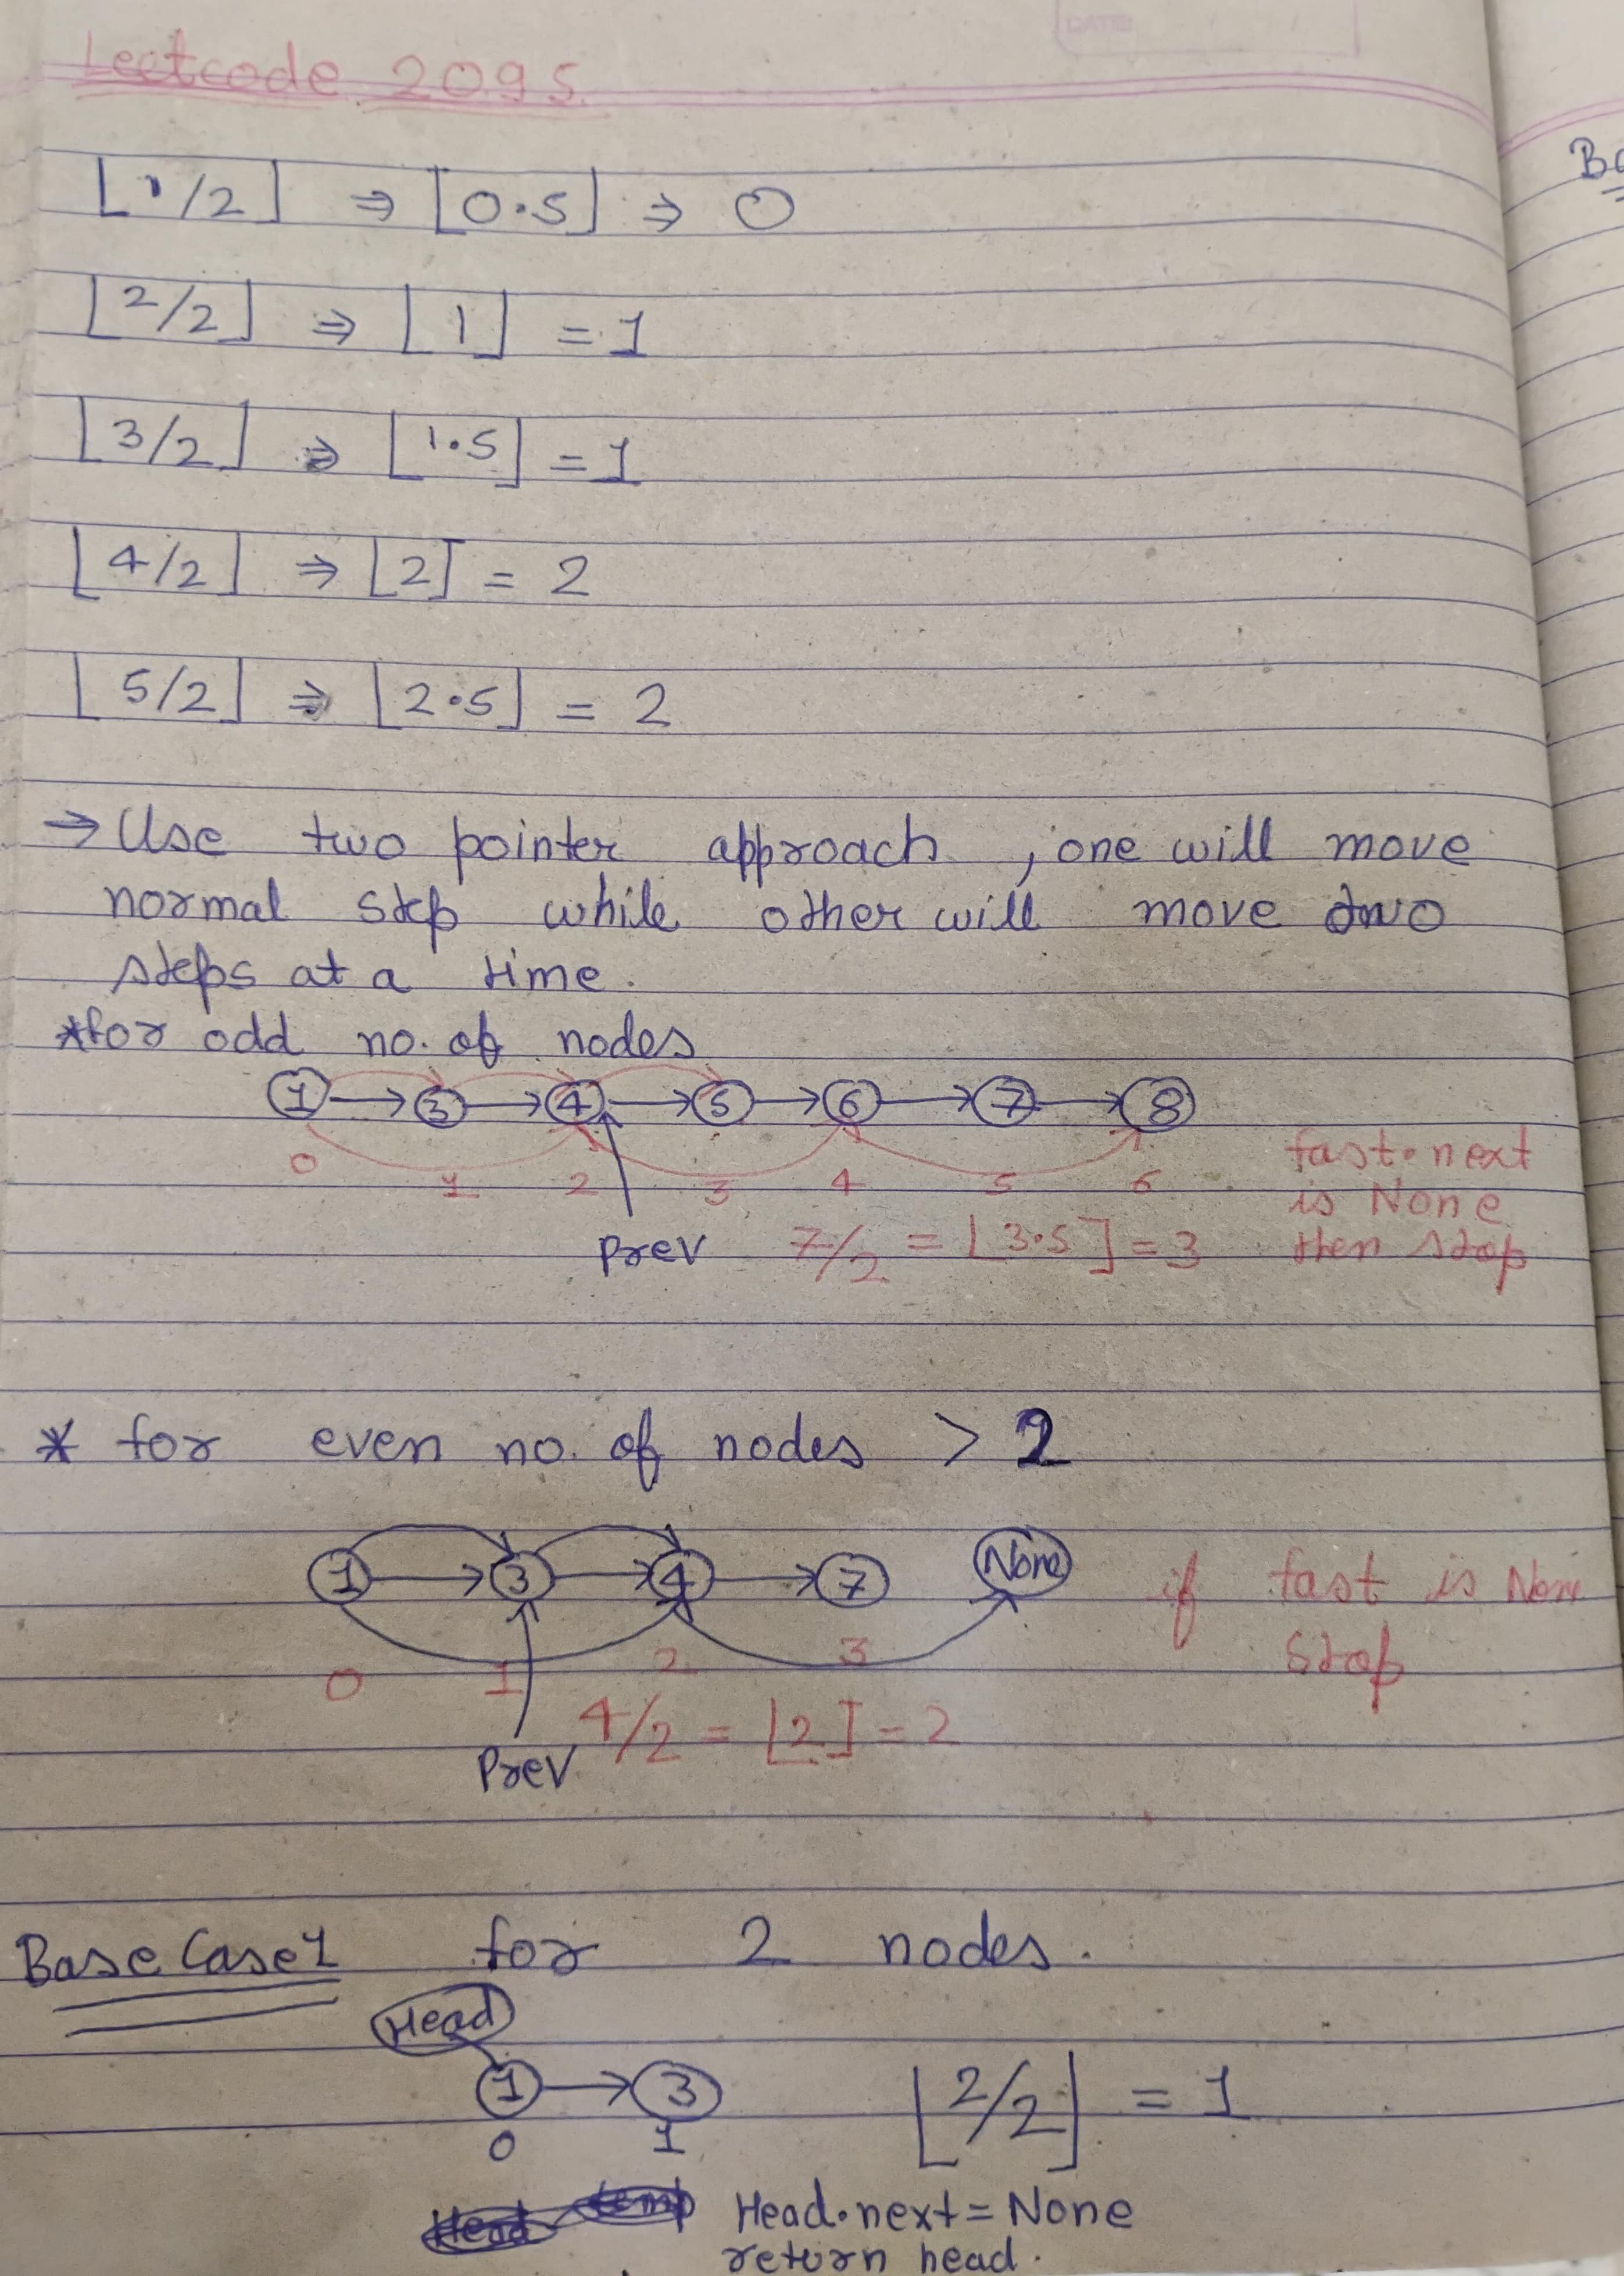 DATE:
Leetcode 2095
⌊1/2⌋ ⇒ ⌊0.5⌋ ⇒ 0
⌊2/2⌋ ⇒ ⌊1⌋ = 1
⌊3/2⌋ ⇒ ⌊1.5⌋ = 1
⌊4/2⌋ ⇒ ⌊2⌋ = 2
⌊5/2⌋ ⇒ ⌊2.5⌋ = 2
→ Use two pointer approach, one will move
normal step while other will move two
steps at a time.
*for odd no. of nodes
1 → 3 → 4 → 5 → 6 → 7 → 8
0 1 2 3 4 5 6
fast.next
is None
then stop
Prev 7/2 = ⌊3.5⌋ = 3
* for even no. of nodes > 2
1 → 3 → 4 → 7 None
if fast is None
stop
0 1 2 3
4/2 = ⌊2⌋ = 2
Prev
Base Case 1 for 2 nodes.
Head
1 → 3 ⌊2/2⌋ = 1
0 1
Head temp Head.next = None
return head.